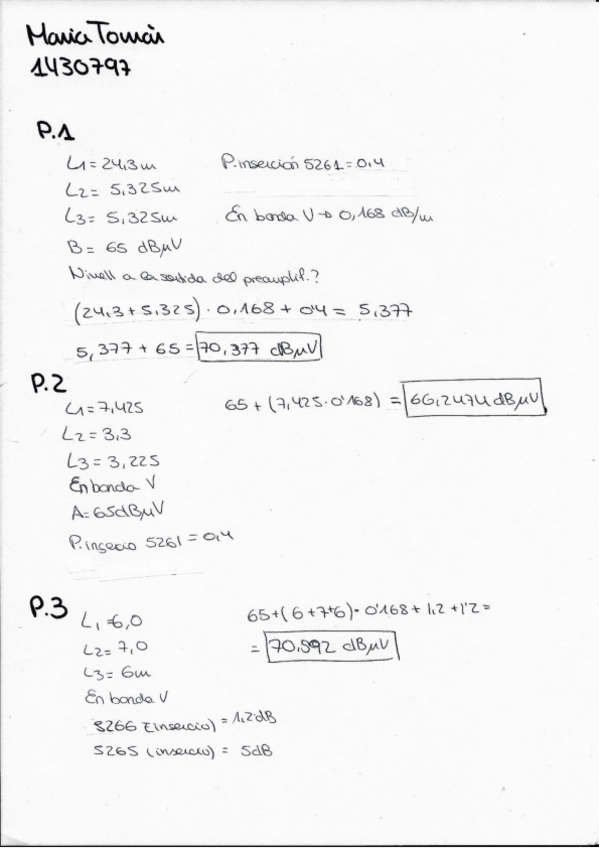 Maria Tomàs
1430797
P.1
L1 = 24,3m P.inserción 5261 = 0,4
L2 = 5,325m
L3 = 5,325m En banda V → 0,168 dB/m
B = 65 dBμV
Nivell a la sortida del preamplif.?
(24,3 + 5,325) · 0,168 + 0'4 = 5,377
5,377 + 65 = 70,377 dBμV
P.2
L1 = 7,425 65 + (7,425 · 0'168) = 66,2474 dBμV
L2 = 3,3
L3 = 3,225
En banda V
A = 65dBμV
P.insercio 5261 = 0,4
P.3
L1 = 6,0 65 + (6 + 7 + 6) · 0'168 + 1,2 + 1'2 =
L2 = 7,0 = 70,592 dBμV
L3 = 6m
En banda V
5266 (insercio) = 1,2dB
5265 (insercio) = 5dB